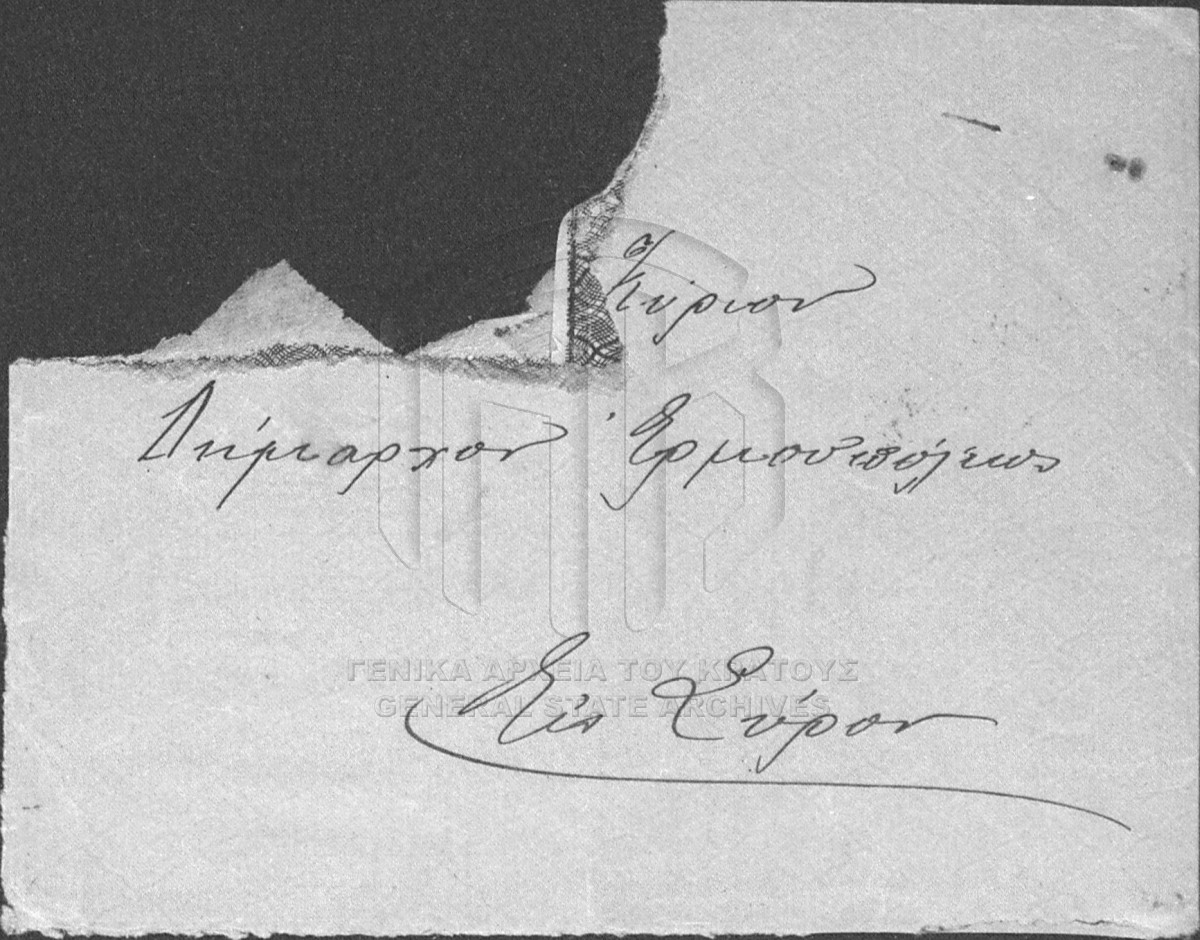 Κύριον
Δήμαρχον Ἑρμουπόλεως
ΓΕΝΙΚΑ ΑΡΧΕΙΑ ΤΟΥ ΚΡΑΤΟΥΣ
GENERAL STATE ARCHIVES
Εἰς Σύρον